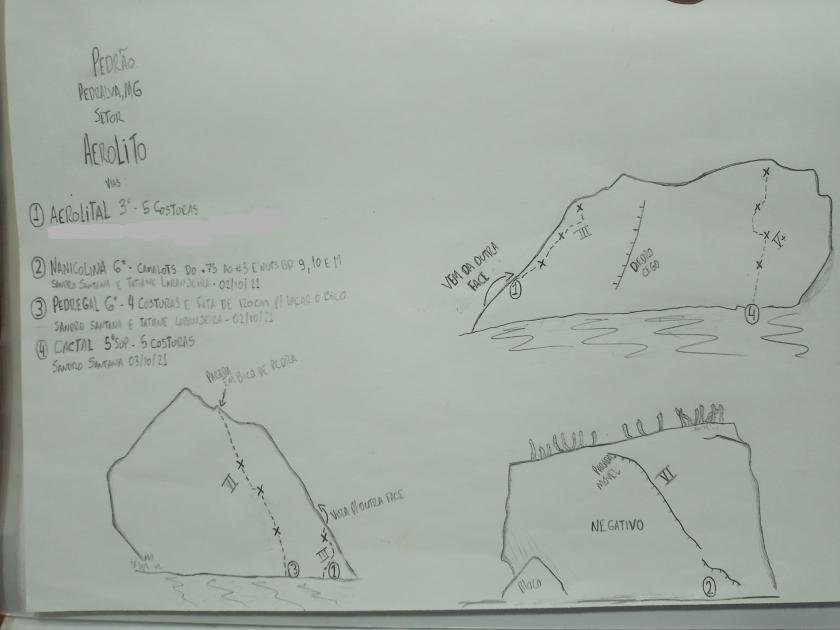 PEDRÃO
PEDRALVA, MG
SETOR
AEROLITO
VIAS
① AEROLITAL 3º - 5 COSTURAS
② NANICOLINA 6º - CAMALOTS DO .75 AO #3 E NUTS BD 9, 10 E 11
SANDRO SANTANA E TATIANE LARANJEIRA - 02/10/21
③ PEDREGAL 6º - 4 COSTURAS E FITA DE 120CM P/ LAÇAR O BICO
SANDRO SANTANA E TATIANE LARANJEIRA - 02/10/21
④ CACTAL 5º SUP - 5 COSTURAS
SANDRO SANTANA 03/10/21
VEM DA OUTRA
FACE
①
III
DIEDRO
CEGO
V+
④
PARADA
EM BICO DE PEDRA
VI
VIRA P/ OUTRA FACE
III
③
①
PARADA
MÓVEL
VI
NEGATIVO
②